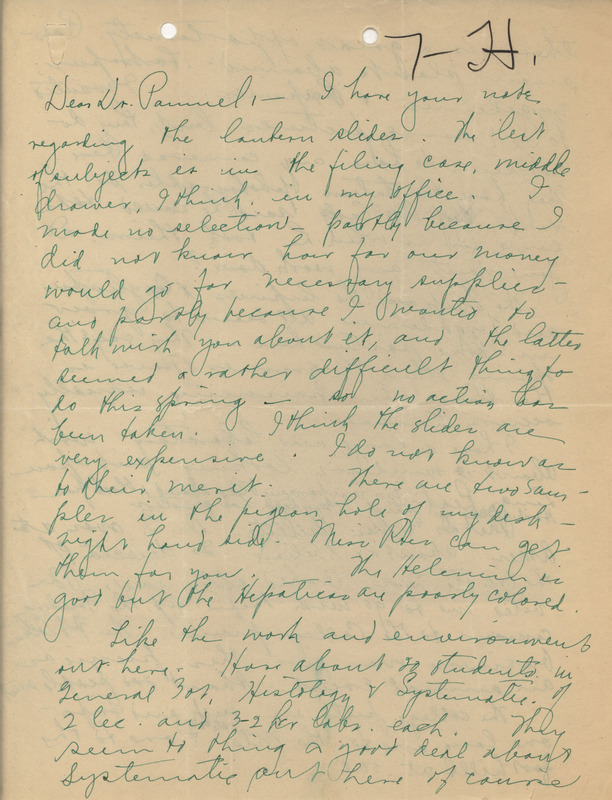 7-H.
Dear Dr. Pammel:— I have your note
regarding the lantern slides. The list
of subjects is in the filing case, middle
drawer, I think, in my office. I
made no selection— partly because I
did not know how far our money
would go for necessary supplies—
and partly because I wanted to
talk with you about it, and the latter
seemed a rather difficult thing to
do this spring — so no action has
been taken. I think the slides are
very expensive. I do not know as
to their merit. There are two sam-
ples in the pigeon hole of my desk—
right hand side. Miss can get
them for you. The Helenium is
good but the Hepaticas are poorly colored.
Like the work and environment
out here. Have about 20 students in
General Bot, Histology & Systematic. of
2 lec. and 3-2 hr labs. each. They
seem to thing a good deal about
Systematic out here of course